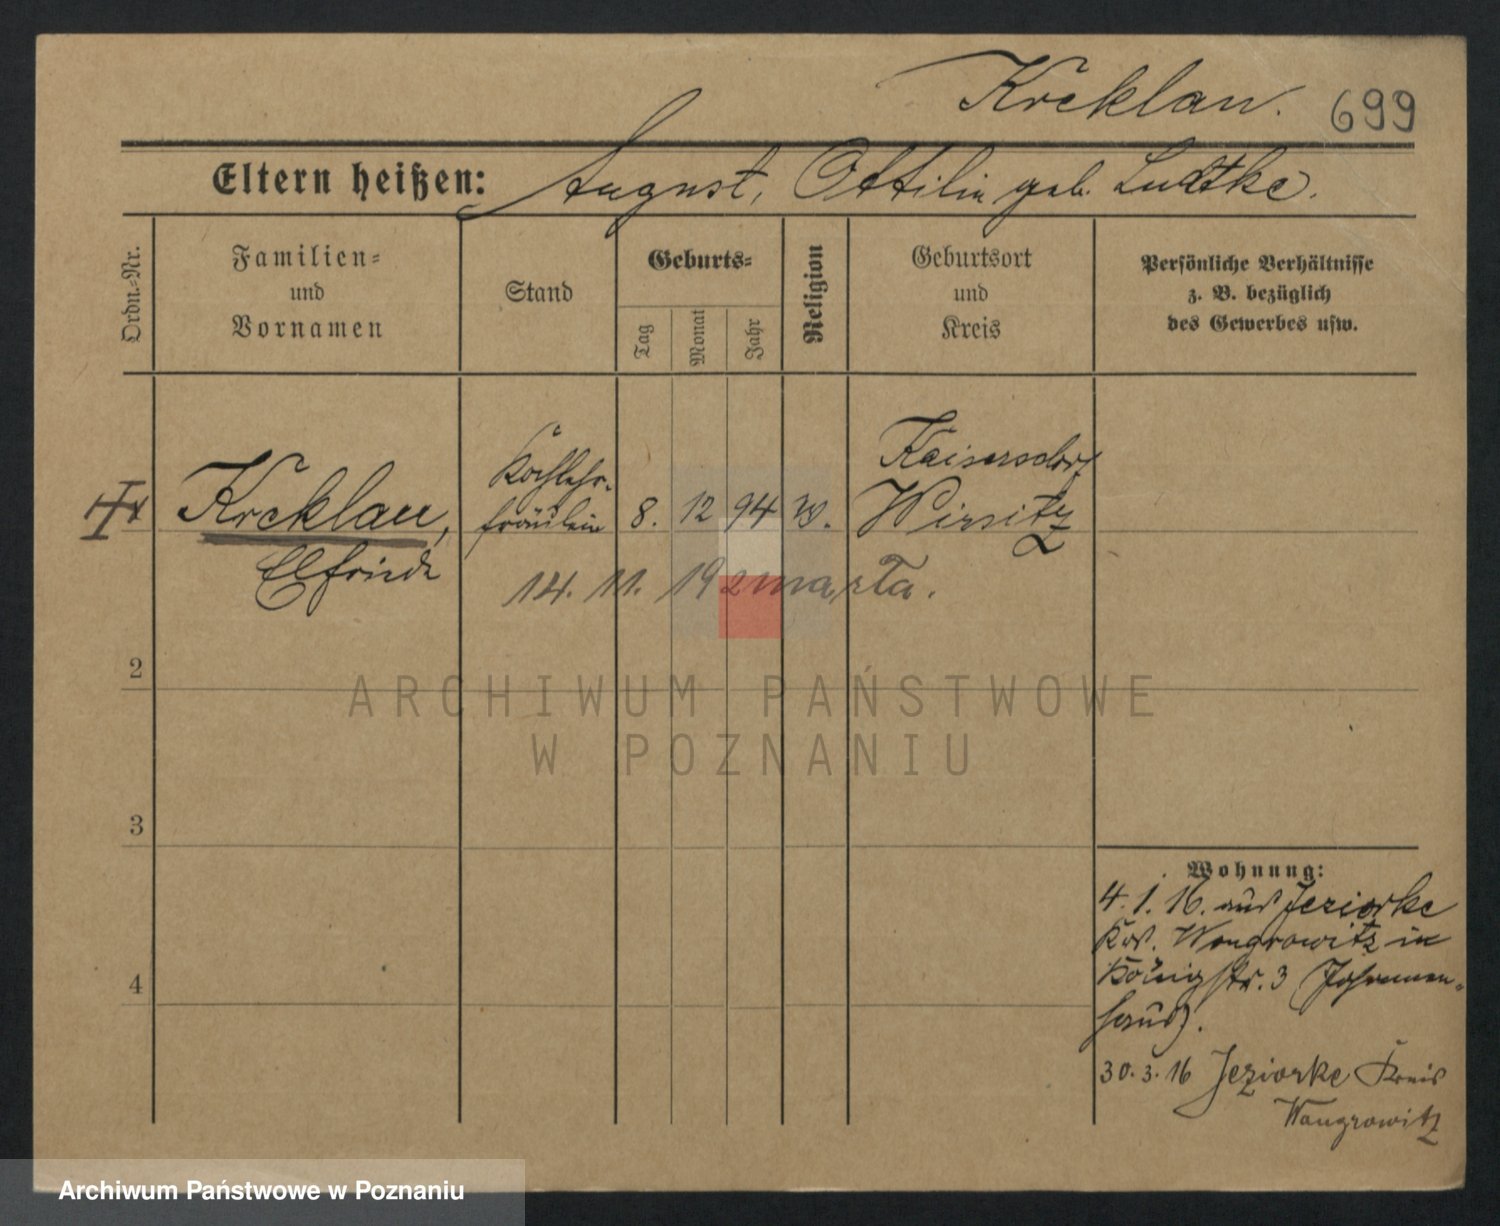 Kreklau. 699
Eltern heißen: August, Ottilie geb. Ludtke.
Ordn.-Nr.
Familien-
und
Vornamen
Stand
Geburts-
Tag
Monat
Jahr
Religion
Geburtsort
und
Kreis
Persönliche Verhältnisse
z. B. bezüglich
des Gewerbes usw.
Kreklau,
Elfriede
Kochlehr-
fräulein
8. 12 94
Kaisersdorf
Wirsitz
14. 11. 19
2
3
4
Wohnung:
4. 1. 16. aus Jeziorke
Krs. Wongrowitz in
Königstr. 3 (Johannen-
haus).
30. 3. 16 Jeziorke Kreis
Wongrowitz
ARCHIWUM PAŃSTWOWE
W POZNANIU
Archiwum Państwowe w Poznaniu